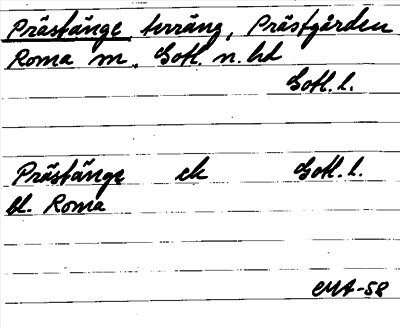 Prästänge terräng, Prästgården
Roma m, Gotl. n. hd
Gotl. l.
Prästänge ek Gotl. l.
bl. Roma
CMA-58